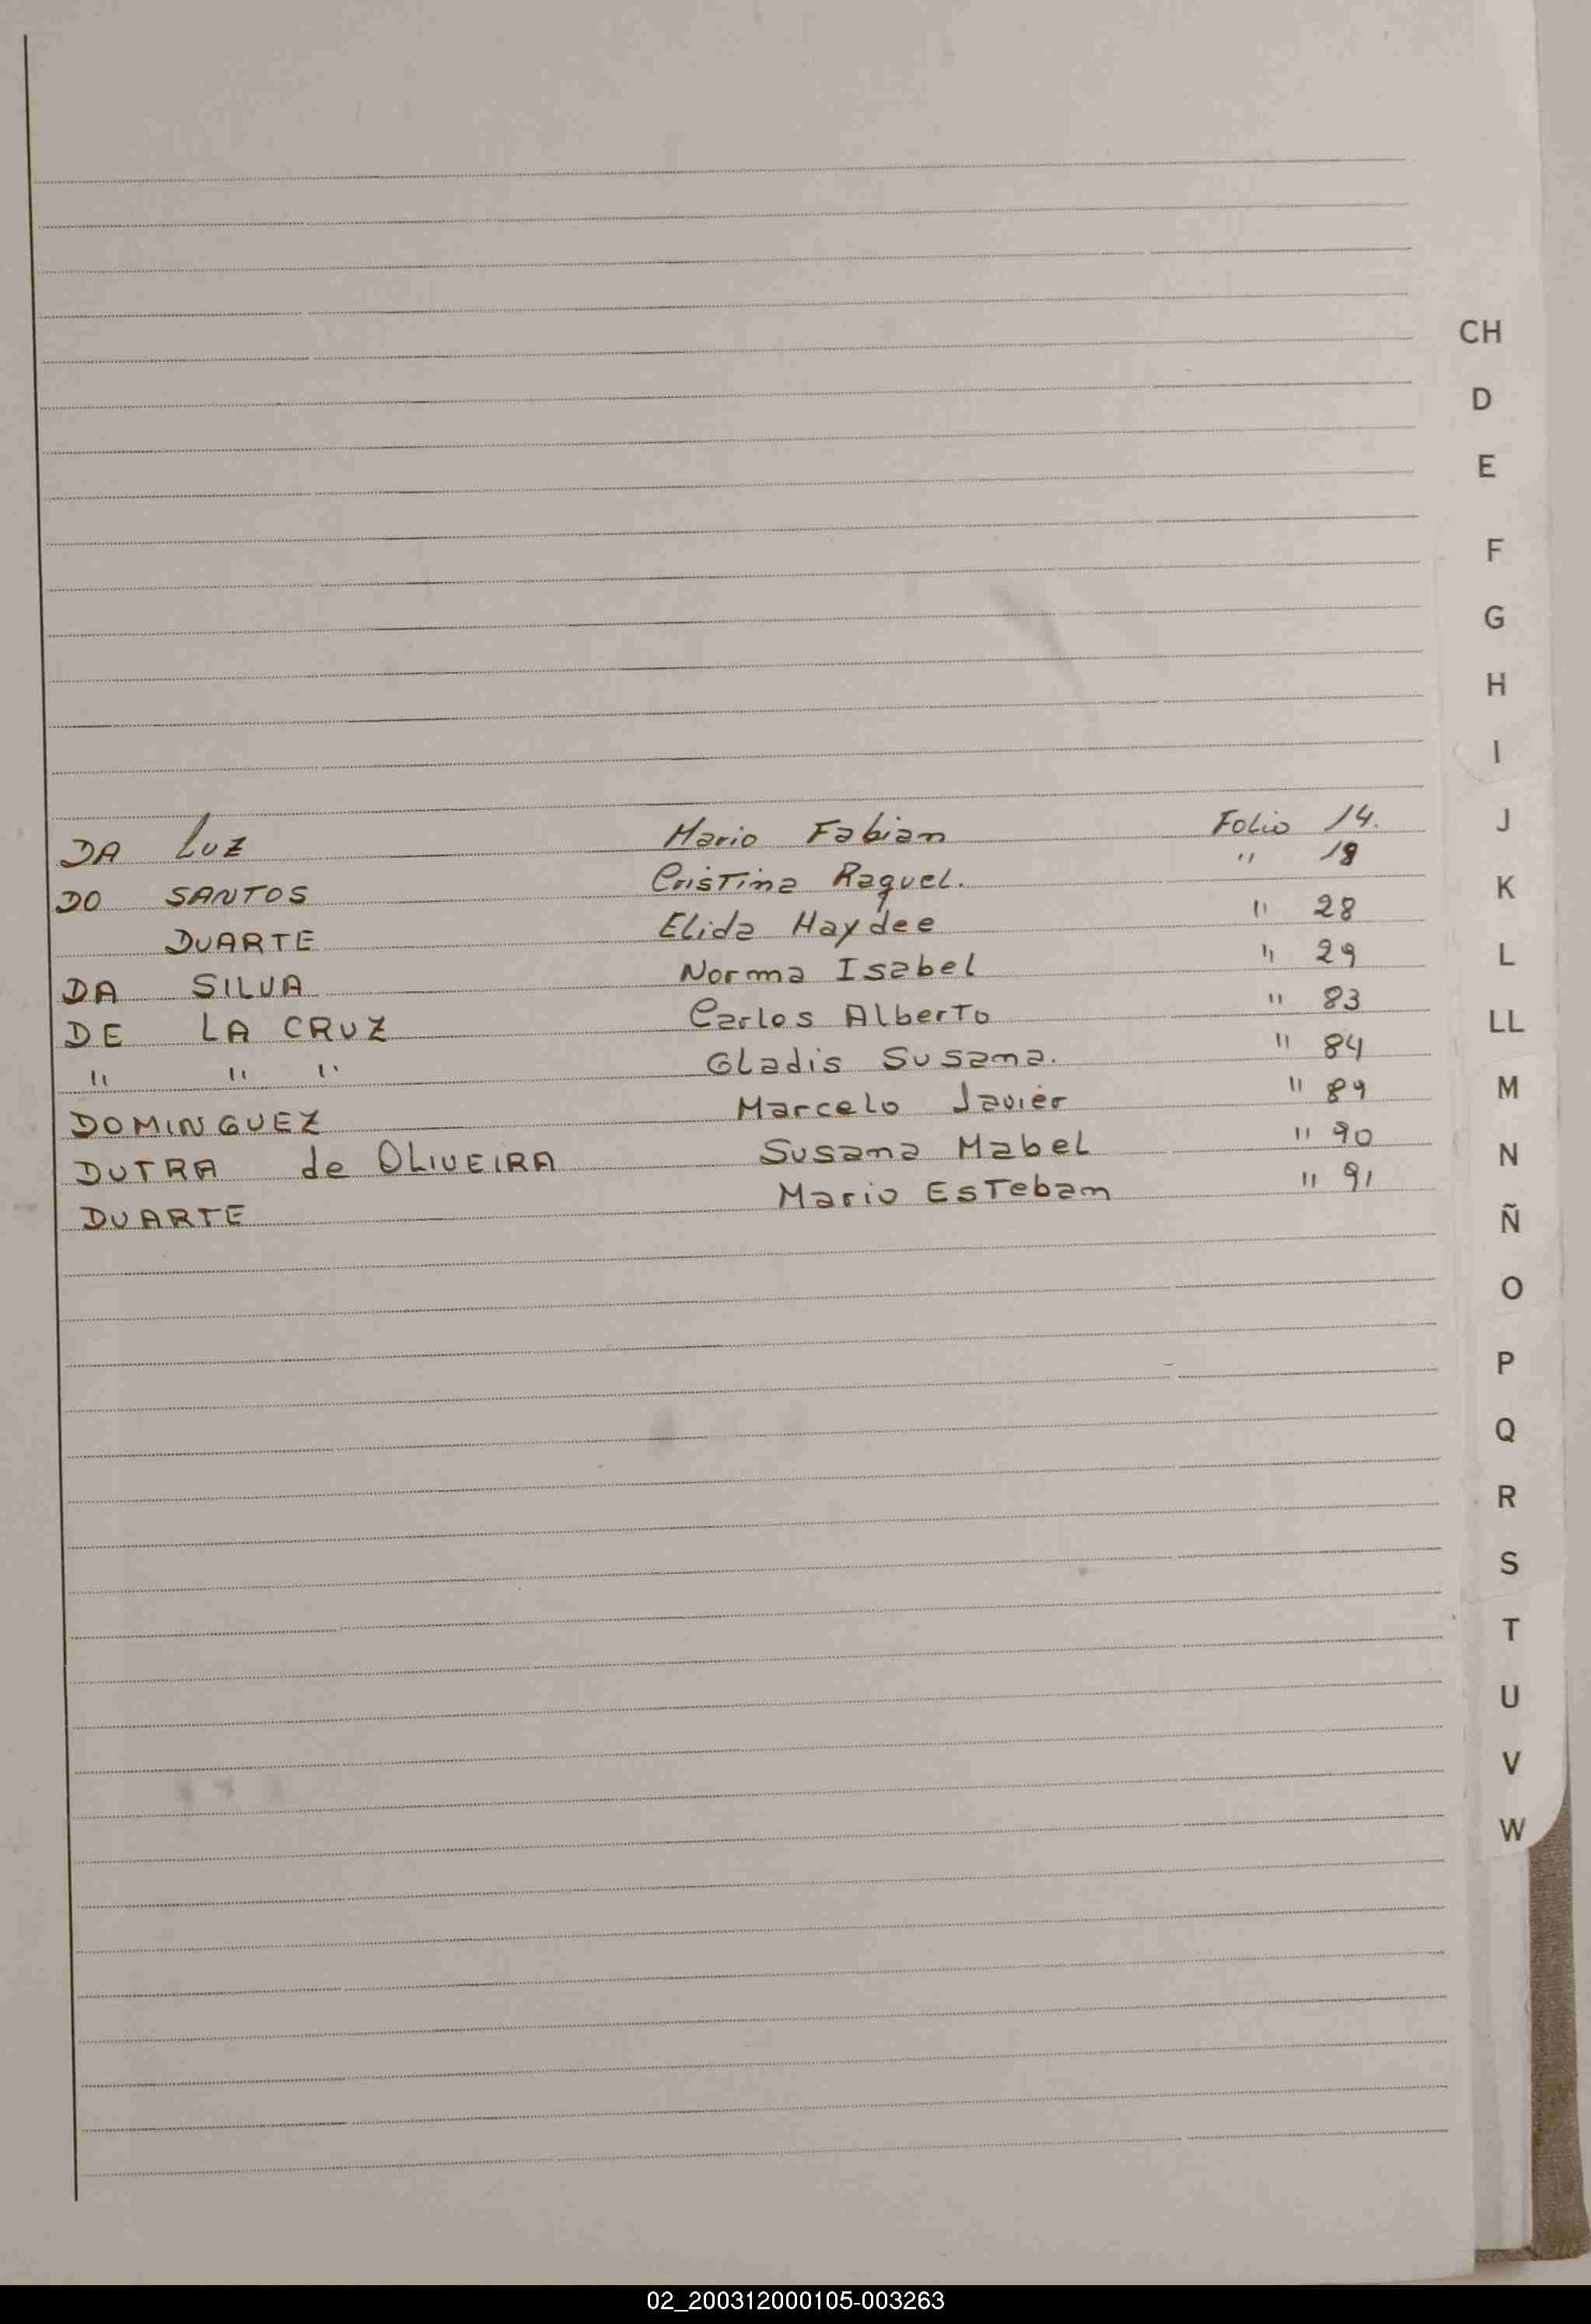 DA Luz Mario Fabian Folio 14.
DO SANTOS Cristina Raquel. " 18
DUARTE Elida Haydee " 28
DA SILVA Norma Isabel " 29
DE LA CRUZ Carlos Alberto " 83
" " " Gladis Susana. " 84
DOMINGUEZ Marcelo Javier " 89
DUTRA de OLIVEIRA Susana Mabel " 90
DUARTE Mario Esteban " 91
CH
D
E
F
G
H
I
J
K
L
LL
M
N
Ñ
O
P
Q
R
S
T
U
V
W
02_200312000105-003263